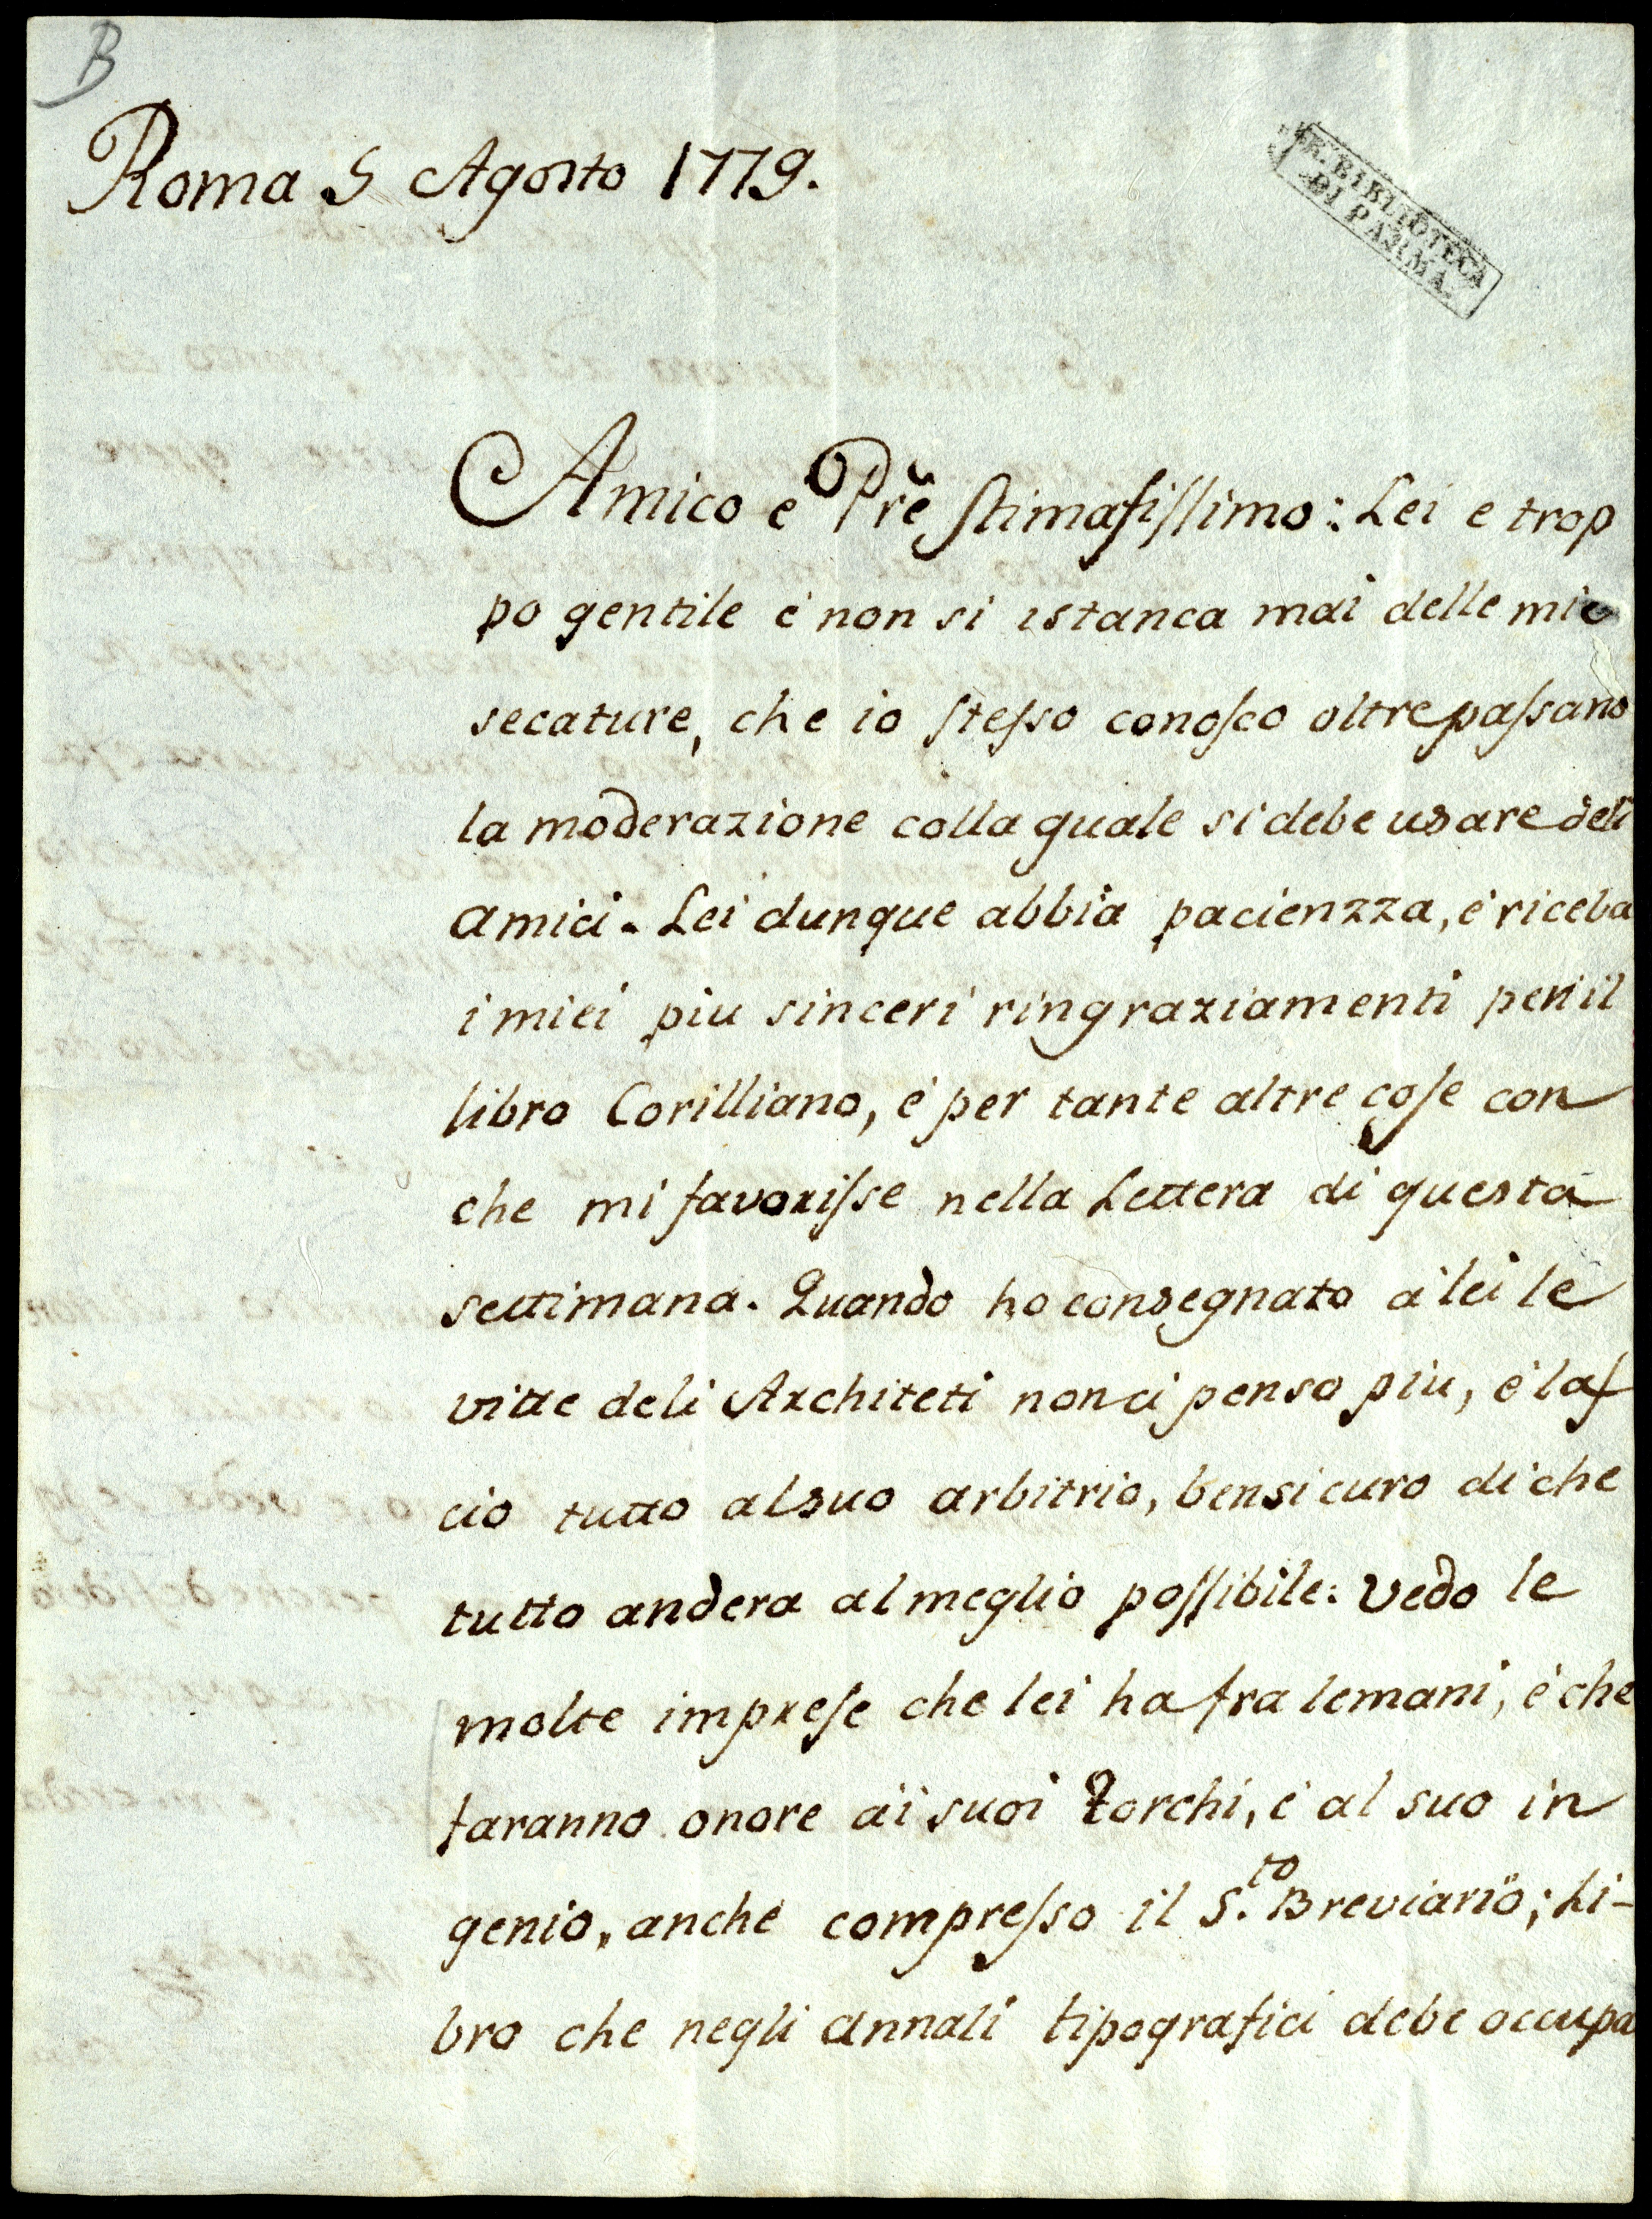 B
Roma 5 Agosto 1779.
R. BIBLIOTECA
DI PARMA.
Amico e Prẽ Stimatissimo: Lei e trop
po gentile e' non si istanca mai delle mie
secature, che io stesso conosco oltrepassano
la moderazione colla quale si debe usare deli
amici. Lei dunque abbia pacienzza, e' riceba
i miei piu sinceri ringraziamenti per il
libro Corilliano, e' per tante altre cose con
che mi favorisse nella Lettera di questa
settimana. Quando ho consegnato a' lei le
vitte deli Architeti non ci penso piu, e' las
cio tutto al suo arbitrio, ben sicuro di che
tutto andera al meglio possibile: Vedo le
molte imprese che lei ha fra le mani, e' che
faranno onore ai suoi Torchi, e' al suo in
genio, anche compresso il S.to Breviario; Li-
bro che negli annali tipografici debe occupa